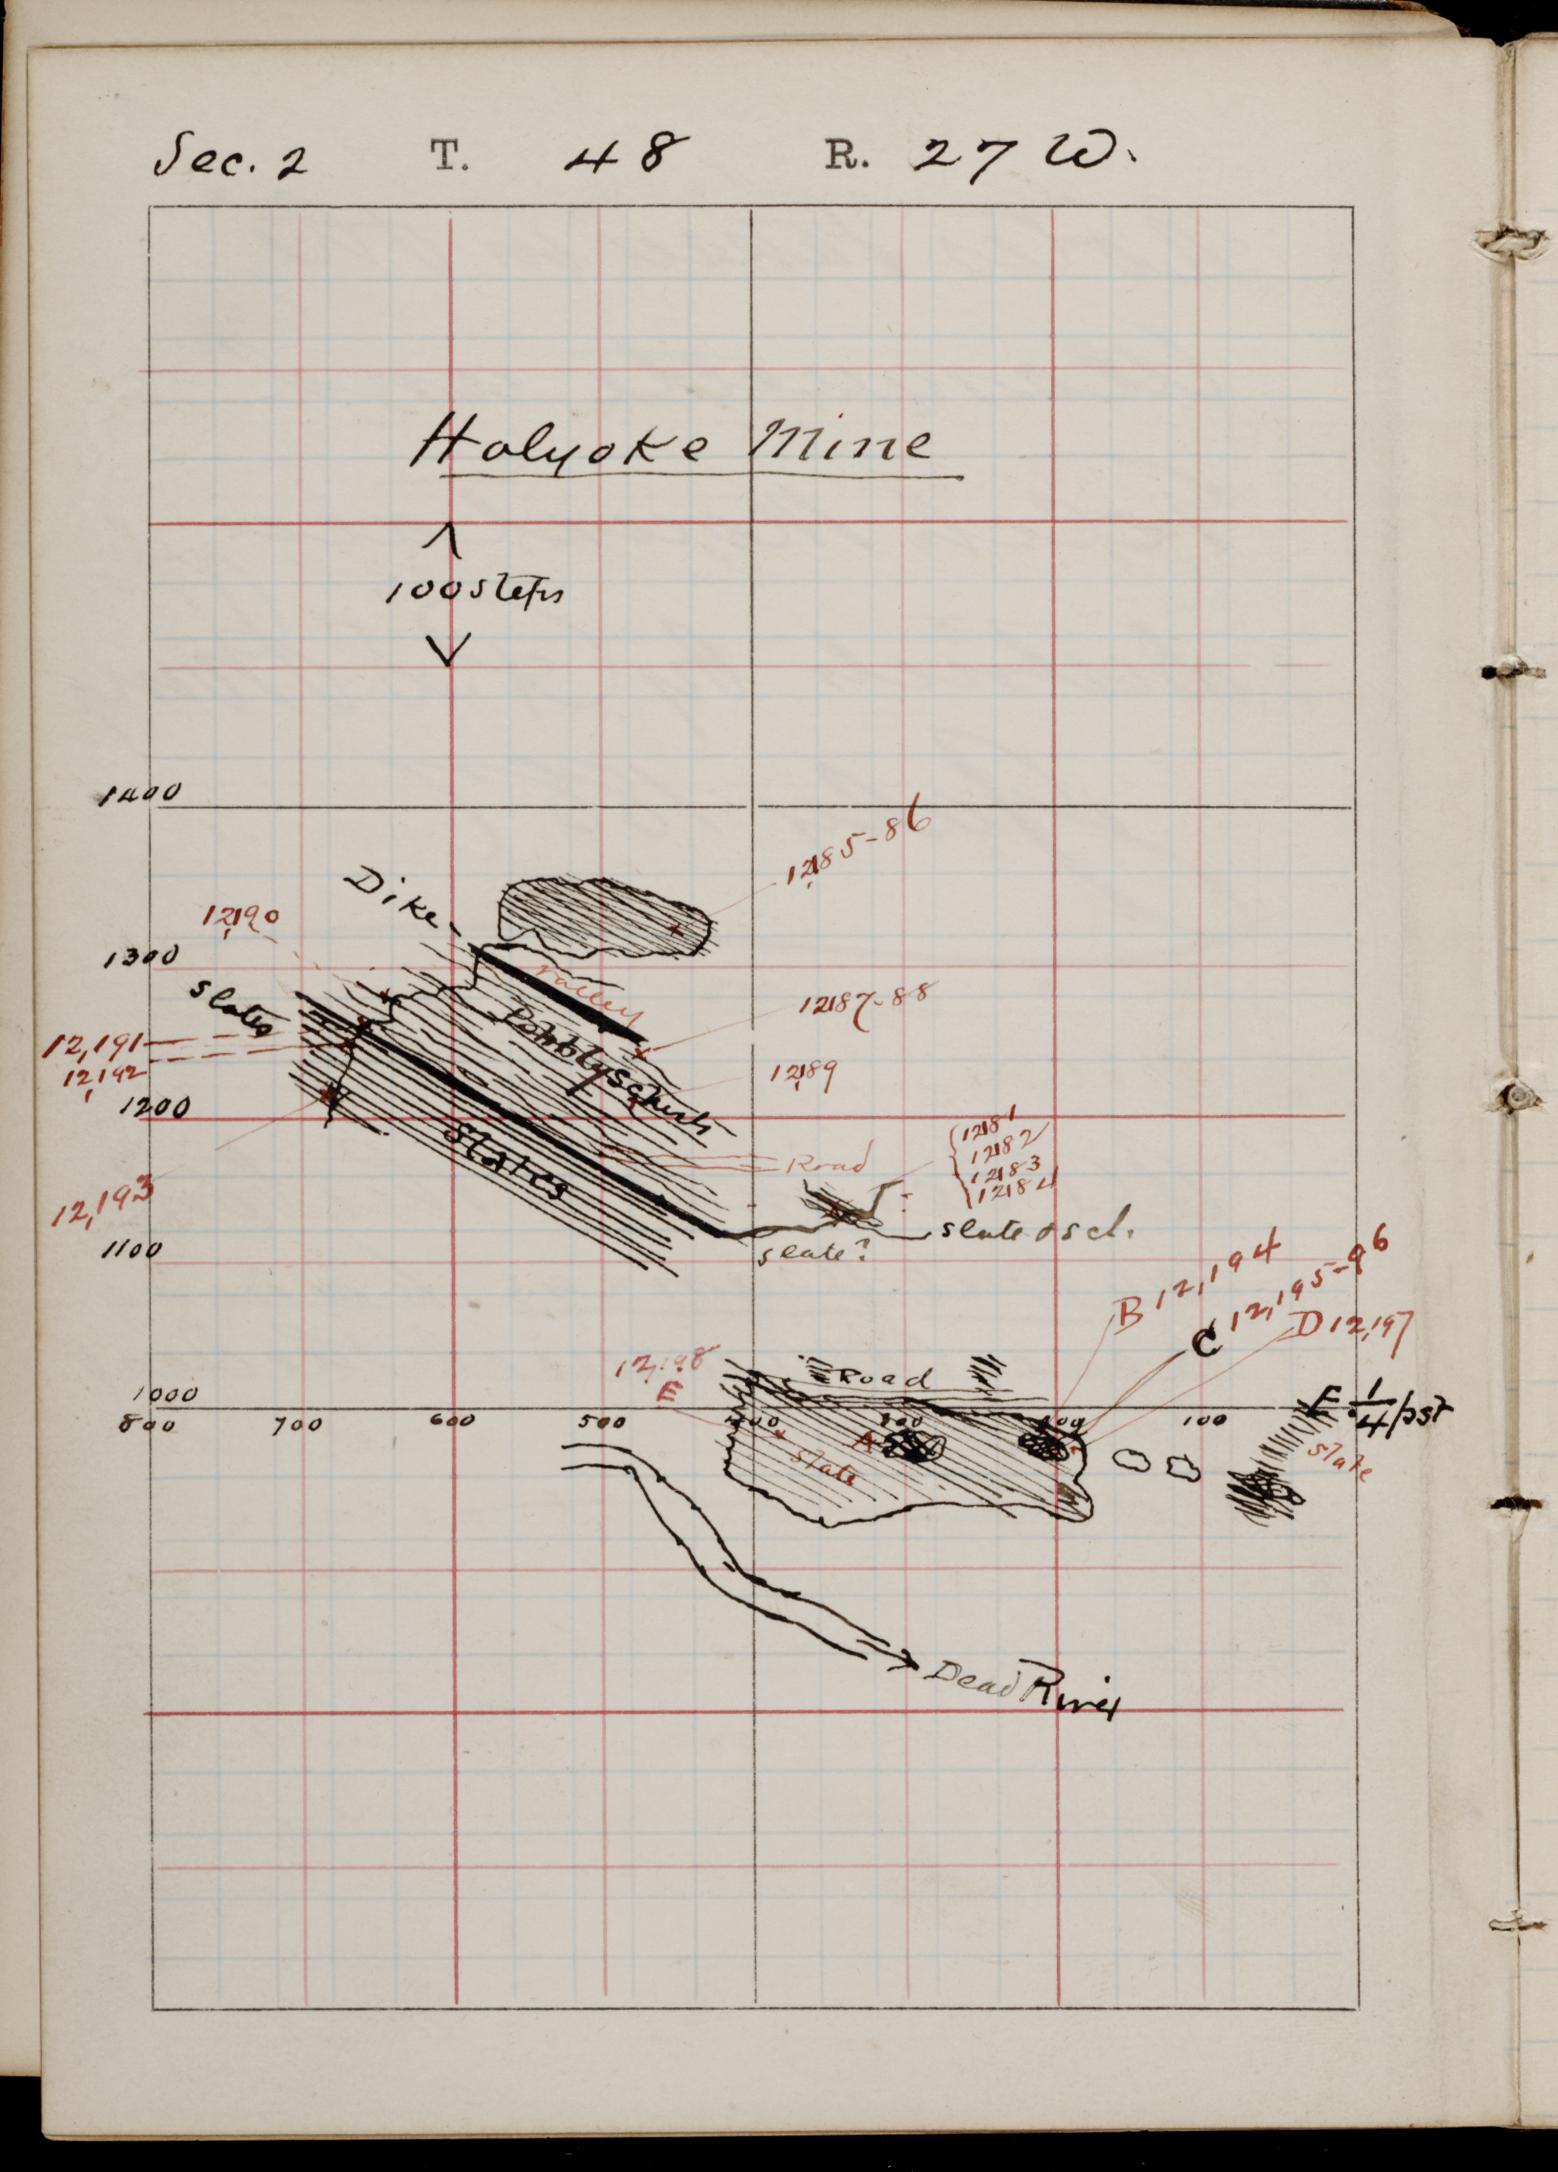 Sec. 2 T. 48 R. 27 W.
Holyoke Mine
100 steps
1400
12185-86
Dike
12190
1300
valley
slates
12187-88
Pebbly schist
12,191
12,192
12189
1200
12181
12182
12183
12184
Slates
Road
12,193
slate & sch.
1100
slate?
B 12,194
C 12,195-96
D 12,197
12,198
E
Road
1000
E 1/4 post
800 700 600 500 400 300 200 100
A
slate
slate
Dead River